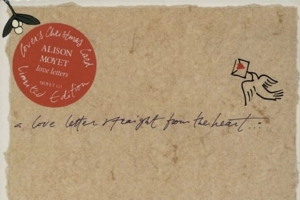 Lovers Christmas Card
ALISON
MOYET
love letters
Limited Edition
a love letter straight from the heart...